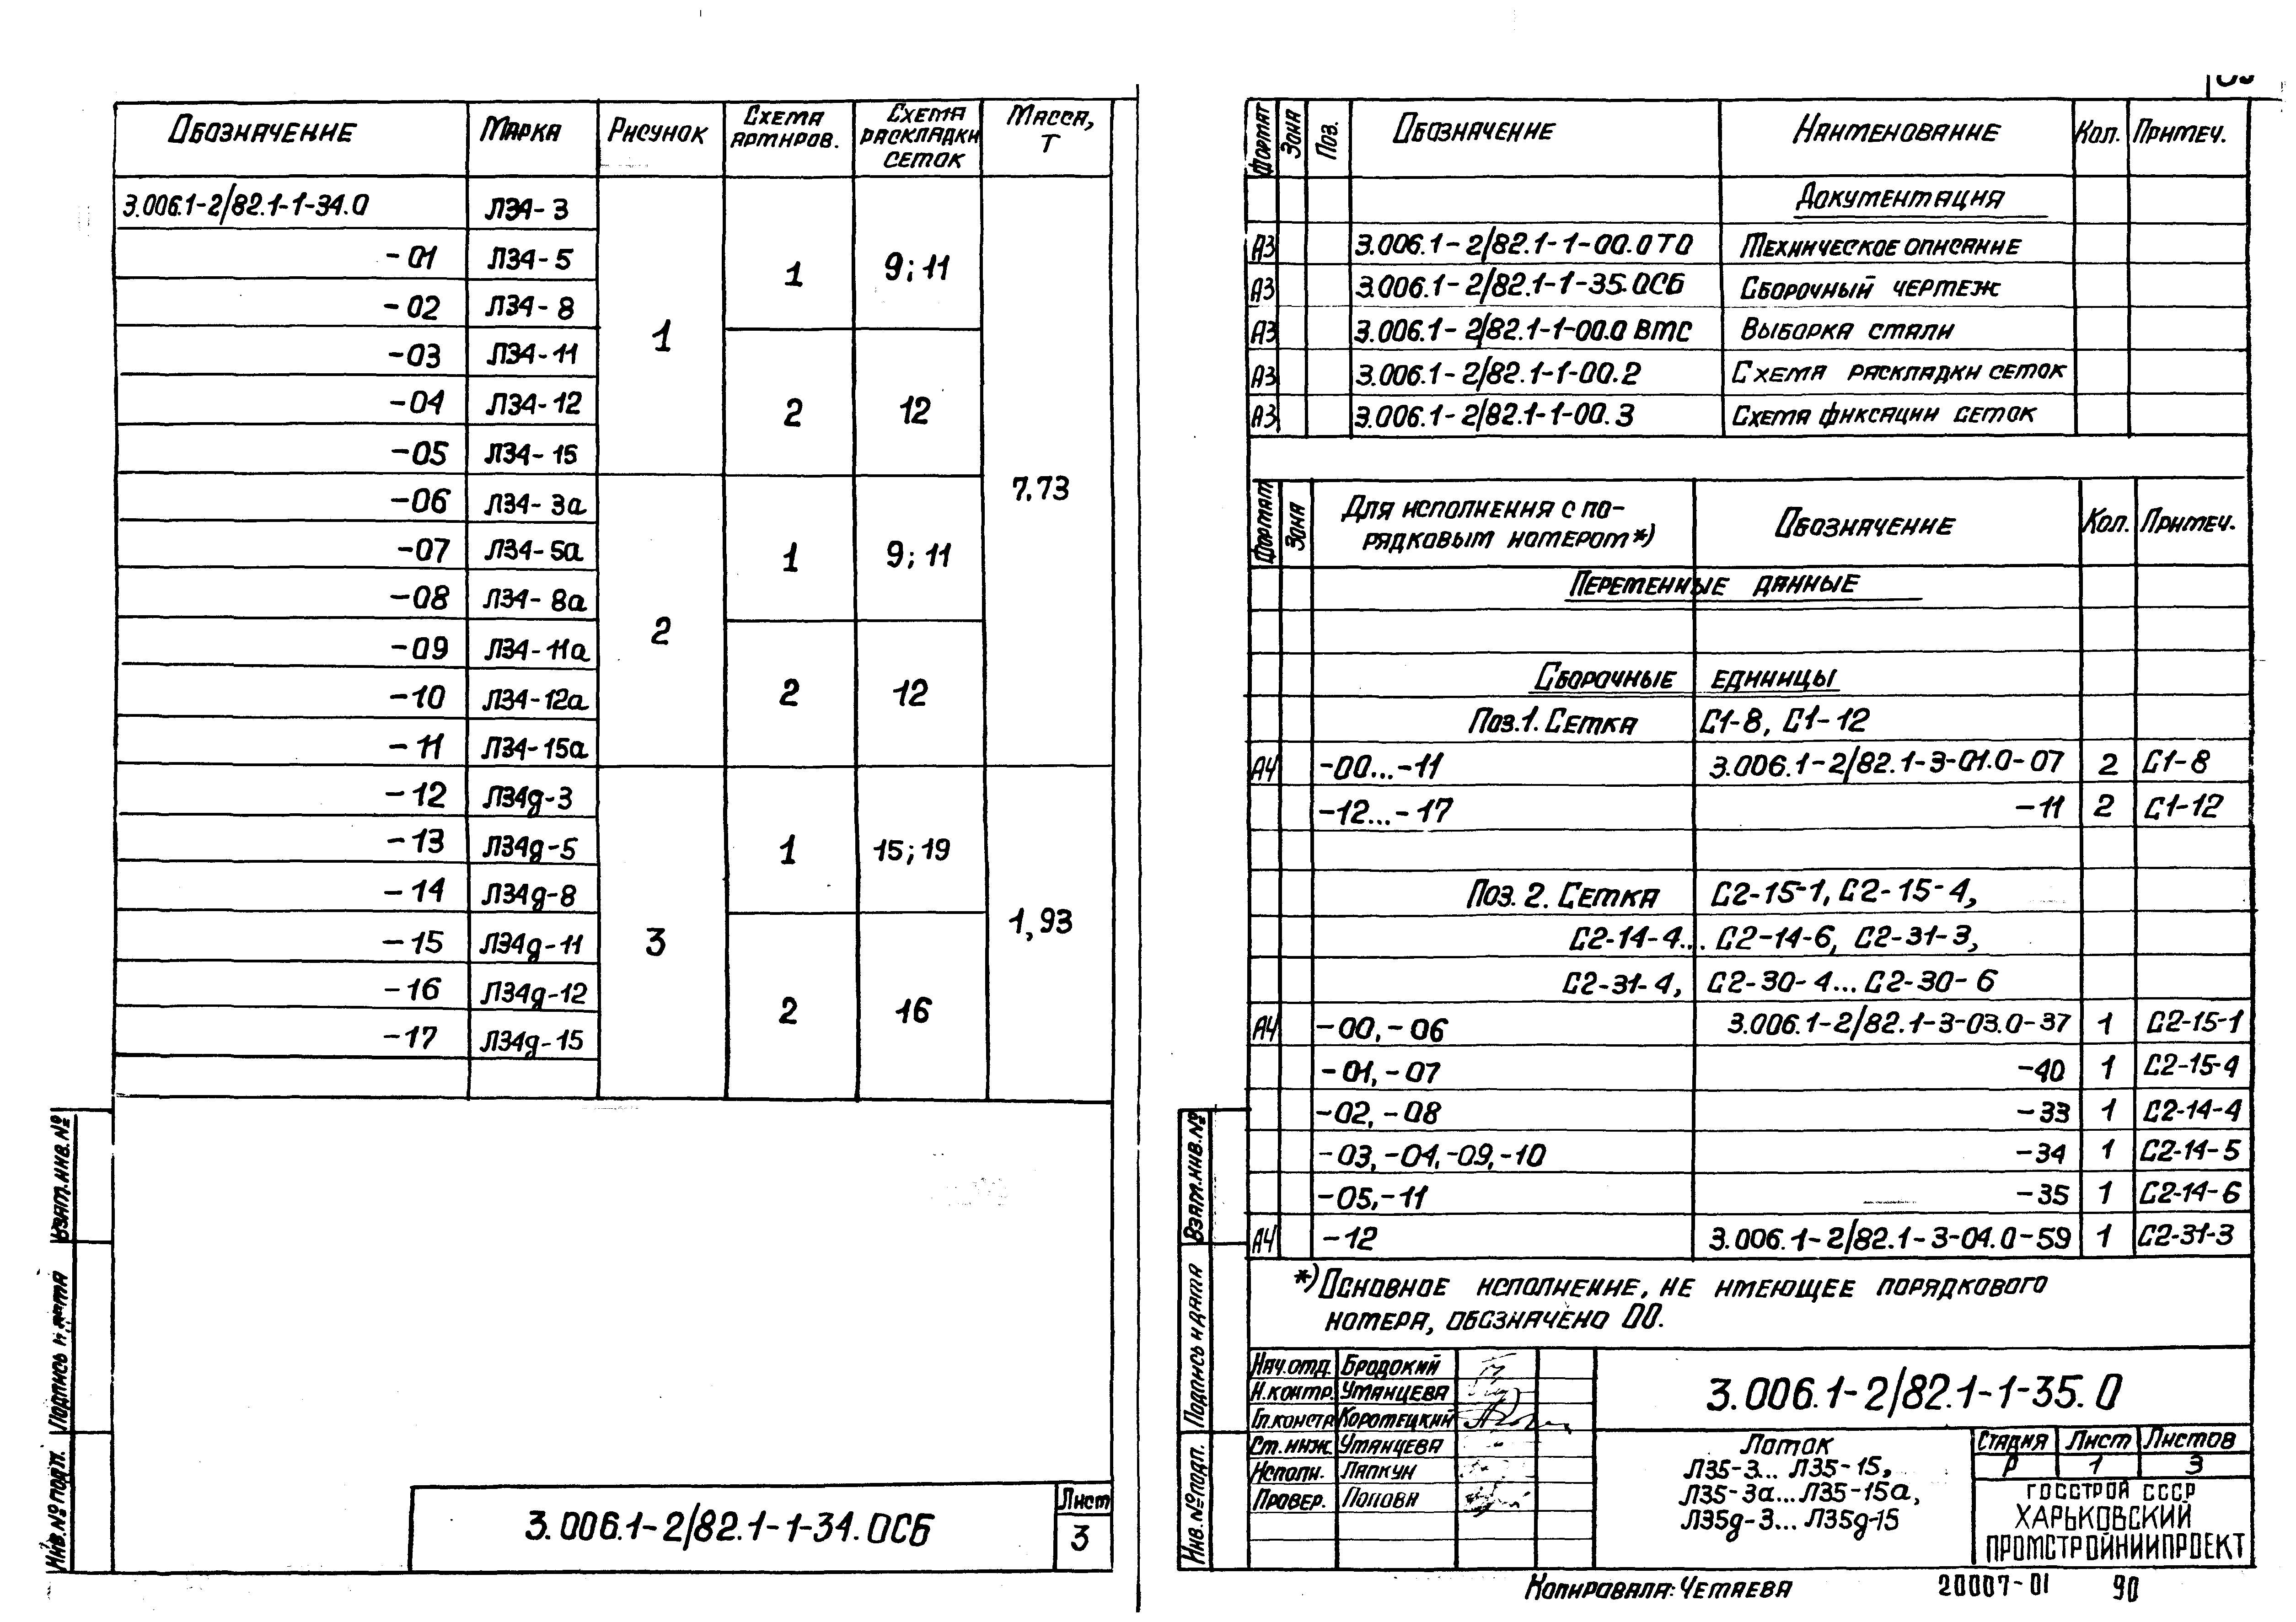 Обозначение Марка Рисунок Схема армиров. Схема раскладки сеток Масса, т
3.006.1-2/82.1-1-34.0 Л34-3
-01 Л34-5
-02 Л34-8
-03 Л34-11
-04 Л34-12
-05 Л34-15
-06 Л34-3а
-07 Л34-5а
-08 Л34-8а
-09 Л34-11а
-10 Л34-12а
-11 Л34-15а
-12 Л34д-3
-13 Л34д-5
-14 Л34д-8
-15 Л34д-11
-16 Л34д-12
-17 Л34д-15
1
2
3
1
2
1
2
1
2
9; 11
12
9; 11
12
15; 19
16
7,73
1,93
Взам.инв.№
Подпись и дата
Инв.№ подл.
3.006.1-2/82.1-1-34.0СБ
Лист
3
Формат Зона Поз. Обозначение Наименование Кол. Примеч.
Документация
А3 3.006.1-2/82.1-1-00.0 ТО Техническое описание
А3 3.006.1-2/82.1-1-35.0СБ Сборочный чертеж
А3 3.006.1-2/82.1-1-00.0 ВМС Выборка стали
А3 3.006.1-2/82.1-1-00.2 Схема раскладки сеток
А3 3.006.1-2/82.1-1-00.3 Схема фиксации сеток
Формат Зона Для исполнения с по-
рядковым номером*) Обозначение Кол. Примеч.
Переменные данные
Сборочные единицы
Поз.1. Сетка С1-8, С1-12
А4 -00...-11 3.006.1-2/82.1-3-01.0-07 2 С1-8
-12...-17 -11 2 С1-12
Поз. 2. Сетка С2-15-1, С2-15-4,
С2-14-4... С2-14-6, С2-31-3,
С2-31-4, С2-30-4... С2-30-6
А4 -00,-06 3.006.1-2/82.1-3-03.0-37 1 С2-15-1
-01,-07 -40 1 С2-15-4
-02,-08 -33 1 С2-14-4
-03,-04,-09,-10 -34 1 С2-14-5
-05,-11 -35 1 С2-14-6
А4 -12 3.006.1-2/82.1-3-04.0-59 1 С2-31-3
*) Основное исполнение, не имеющее порядкового
номера, обозначено 00.
Взам.инв.№
Подпись и дата
Инв.№ подл.
Нач.отд. Бродский
Н.контр. Уманцева
Гл.констр Коротецкий
Ст.инж. Уманцева
Исполн. Лапкун
Провер. Попова
3.006.1-2/82.1-1-35.0
Лоток
Л35-3... Л35-15,
Л35-3а...Л35-15а,
Л35д-3... Л35д-15
Стадия Лист Листов
Р 1 3
ГОССТРОЙ СССР
ХАРЬКОВСКИЙ
ПРОМСТРОЙНИИПРОЕКТ
Копировала: Четаева 20007-01 90